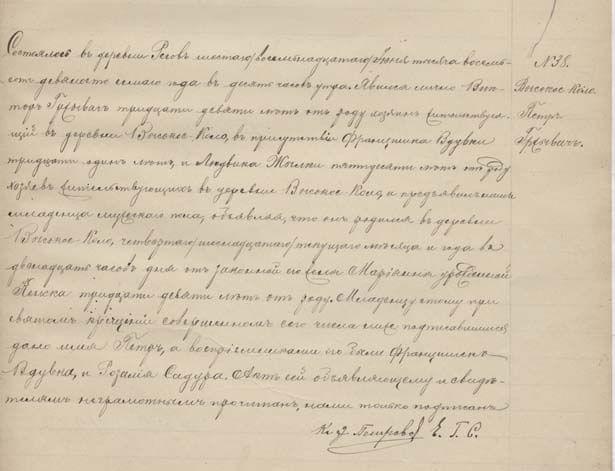 Состоялось въ деревни Рсовъ шестаго/восемьнадцатаго/Іюня тысяча восемь-
сотъ девяносто седьмаго года въ десять часовъ утра. Явился лично Вик-
торъ Грхывачъ тридцати девяти лѣтъ отъ роду хозяинъ жительствую-
щій въ деревни Высокое-Коло, въ присутствіи Францишка Вдувки
тридцати одинъ лѣтъ, и Людвика пятидесяти лѣтъ отъ роду
хозяевъ жительствующихъ въ деревни Высокое-Коло, и предъявилъ намъ
младенца мужескаго пола, объявляя, что онъ родился въ деревни
Высокое-Коло, четвертаго/шестнадцатаго/текущаго мѣсяца и года въ
двенадцать часовъ дня отъ законной его жены Маріянна урожденной
тридцати девяти лѣтъ отъ роду. Младенцу этому при
святомъ крещеніи совершенномъ сего числа ниже подписавшимся
дано имя Петръ, а воспріемниками его были Францишекъ
Вдувка, и Розалія Садура. Актъ сей объявляющему и свидѣ-
телямъ неграмотнымъ прочитанъ, нами только подписанъ
Е. Г. С.
№38.
Высокое-Коло.
Петръ
Грхывачъ.